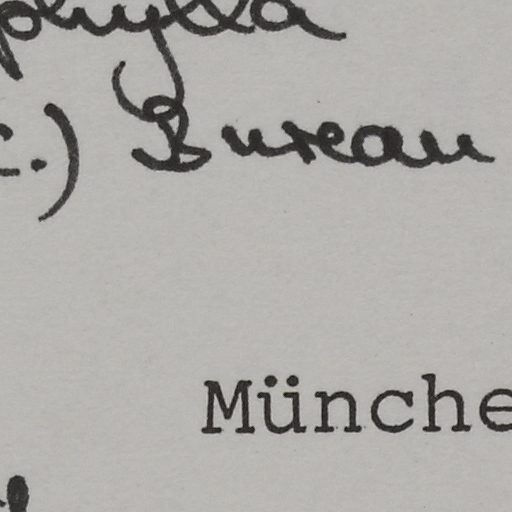 phylla
c.) Bureau
Münche